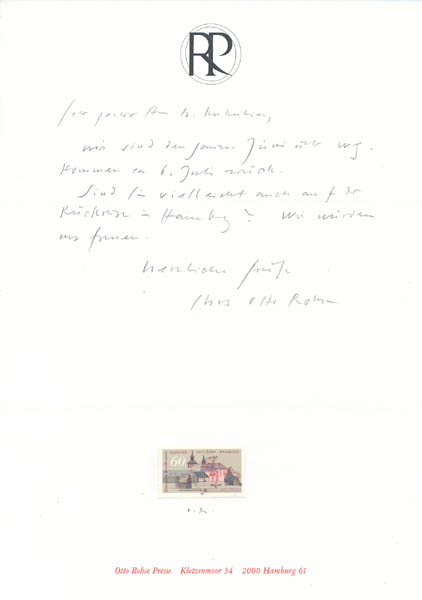 RP
Sehr geehrter Herr Dr.
wir sind den ganzen Juni über weg.
Kommen ca 6. Juli zurück.
Sind Sie vielleicht auch auf der
Rückreise in Hamburg? Wir würden
uns freuen.
Herzliche Grüße
Ihr Otto Rohse
60
Otto Rohse Presse Kletzenmoor 34 2000 Hamburg 61